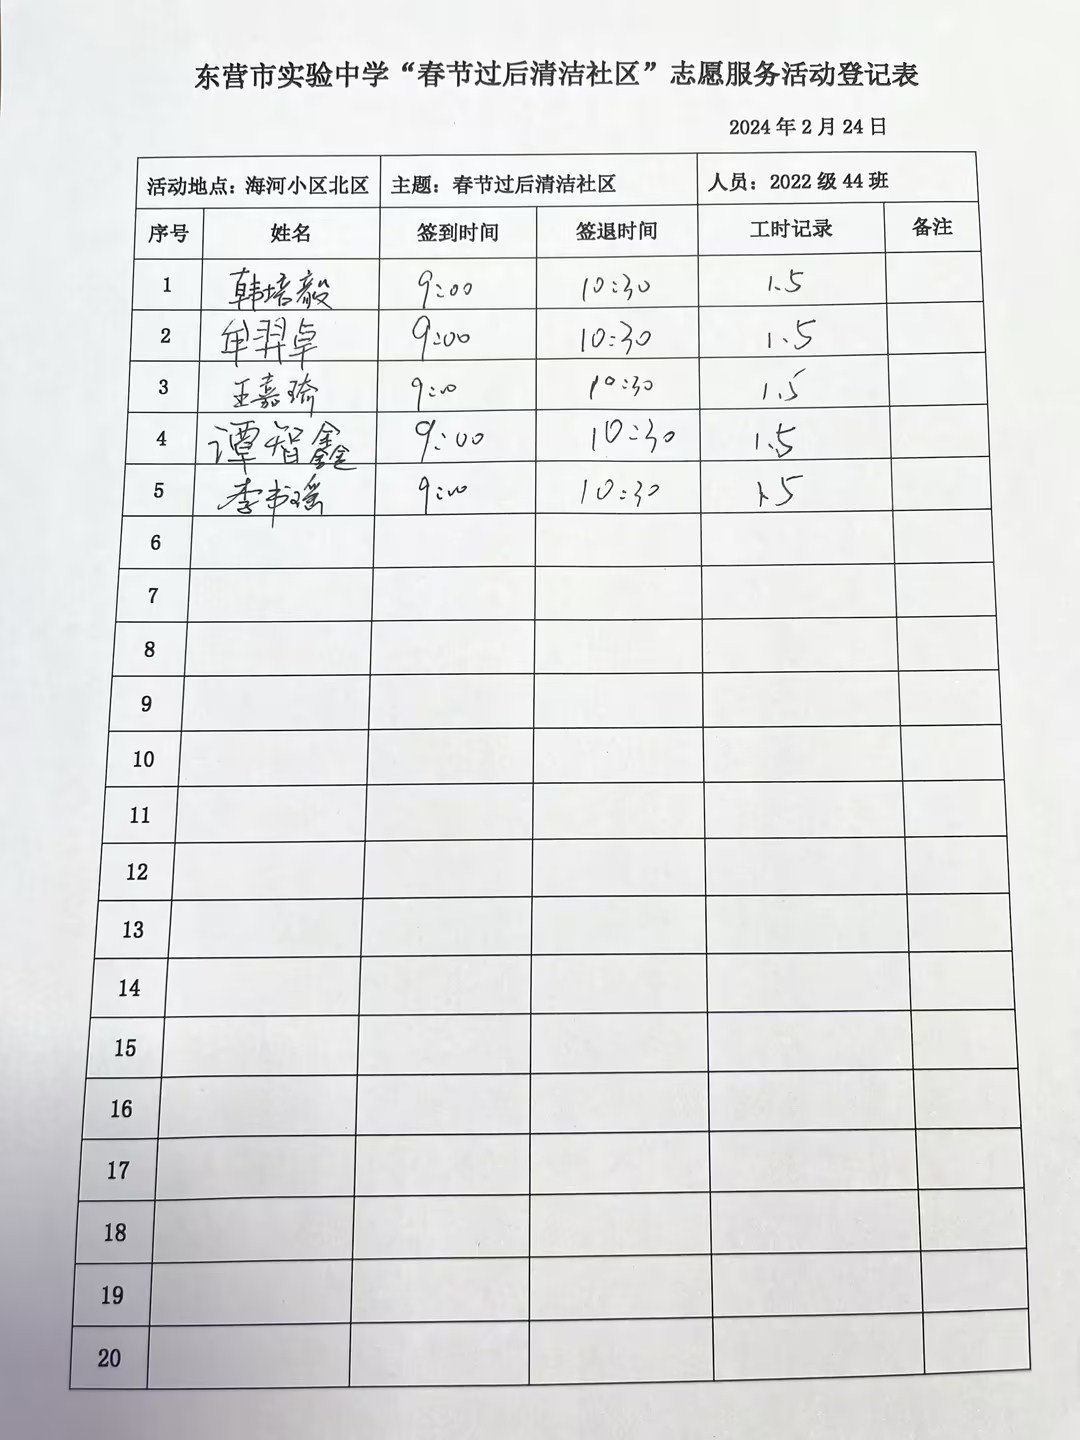 东营市实验中学“春节过后清洁社区”志愿服务活动登记表
2024 年 2 月 24 日
活动地点：海河小区北区 主题：春节过后清洁社区 人员：2022 级 44 班
序号 姓名 签到时间 签退时间 工时记录 备注
1 韩培毅 9:00 10:30 1.5
2 牟羿卓 9:00 10:30 1.5
3 王嘉琦 9:00 10:30 1.5
4 谭智鑫 9:00 10:30 1.5
5 李书瑶 9:00 10:30 1.5
6
7
8
9
10
11
12
13
14
15
16
17
18
19
20